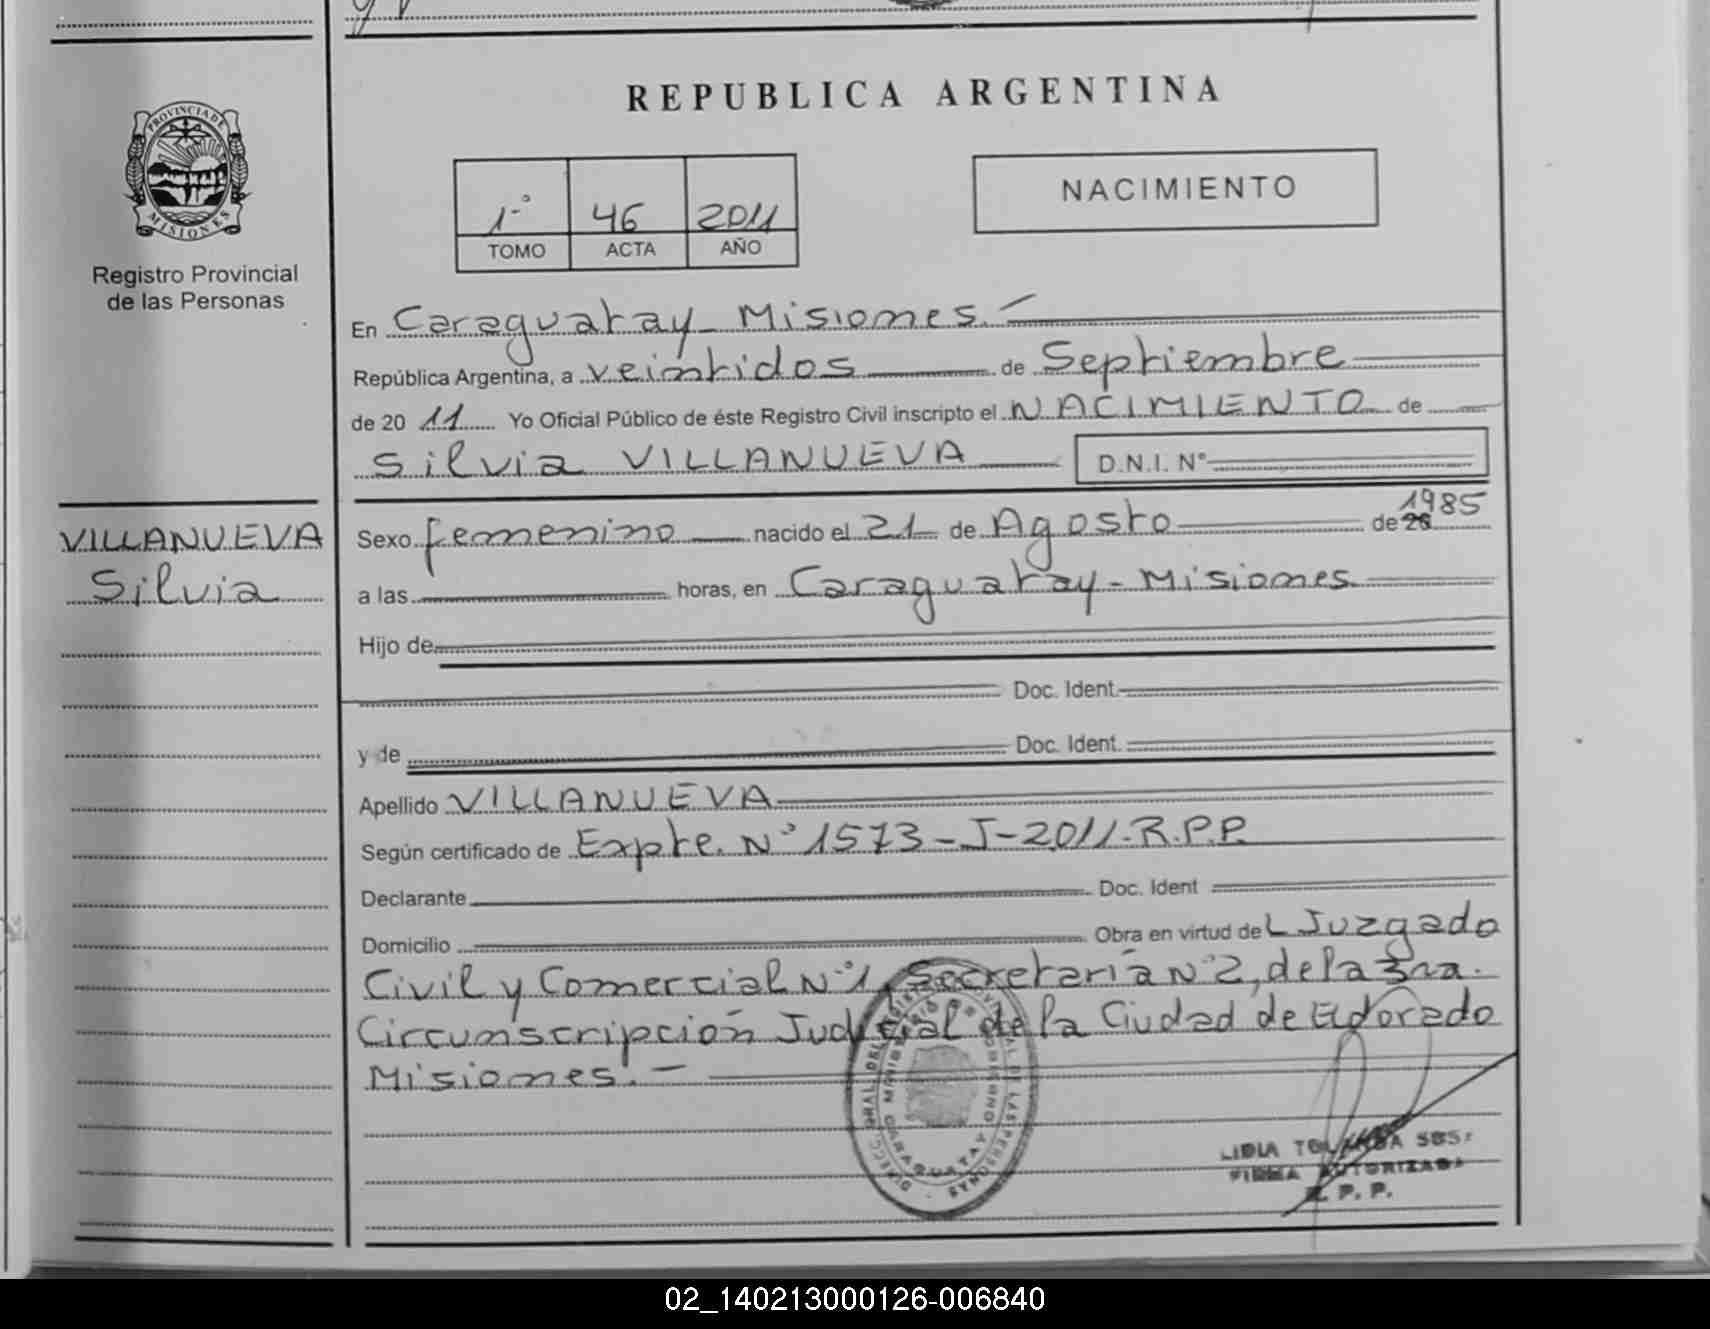 REPUBLICA ARGENTINA
PROVINCIA DE MISIONES
Registro Provincial
de las Personas
1º 46 2011
TOMO ACTA AÑO
NACIMIENTO
En Caraguatay Misiones.-
República Argentina, a veintidos de Septiembre
de 20 11 Yo Oficial Público de éste Registro Civil inscripto el NACIMIENTO de
Silvia VILLANUEVA D.N.I. Nº
VILLANUEVA
Silvia
Sexo femenino nacido el 21 de Agosto de 20 1985
a las horas, en Caraguatay - Misiones
Hijo de
Doc. Ident.
y de Doc. Ident.
Apellido VILLANUEVA
Según certificado de Expte. Nº 1573-J-2011-R.P.P.
Declarante Doc. Ident
Domicilio Obra en virtud del Juzgado
Civil y Comercial Nº 1, Secretaría Nº 2, de la 3ra.
Circunscripción Judicial de la Ciudad de Eldorado
Misiones.-
CARAGUATAY
LIDIA
FIRMA AUTORIZADA
R. P. P.
02_140213000126-006840